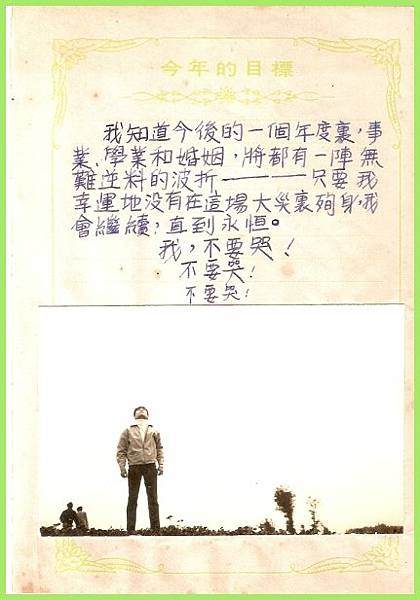 今年的目標
我知道今後的一個年度裏,事
業、學業和婚姻,將都有一陣無
難逆料的波折————只要我
幸運地没有在這場大災裏殉身,我
會繼續,直到永恒。
我,不要哭!
不要哭!
不要哭!